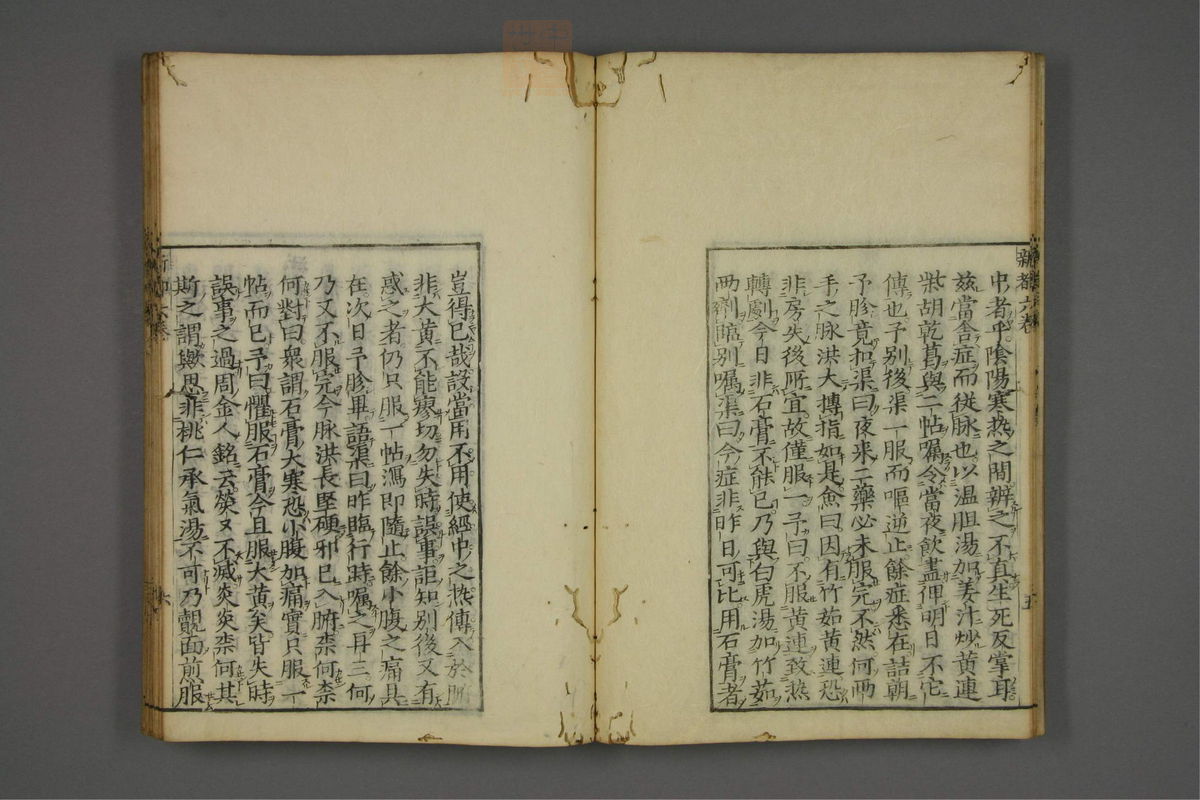 新都六卷
五
中者乎陰陽寒热之間辨之不真生死反掌耳
兹當舍症而従脉也以温胆湯加姜汁炒黄連
柴胡乾葛與二帖嘱令當夜飲盡俾明日不它
傳也予别後渠一服而嘔逆止餘症悉在詰朝
予胗竟扣渠曰夜来二藥必未服完不然何两
手之脉洪大搏指如是僉曰因有竹茹黄連恐
非房失後所宜故僅服一予曰不服黄連致热
轉劇今日非石膏不能已乃與白虎湯加竹茹
两劑臨别嘱渠曰今症非昨日可比用石膏者
豈得已哉設當用不用使經中之热傳入於腑
非大黄不能瘳切勿失時誤事詎知别後又有
惑之者仍只服一帖瀉即隨止餘小腹之痛具
在次日予胗畢語渠曰昨臨行時嘱之再三何
乃又不服完今脉洪長堅硬邪已入腑柰何柰
何對曰衆謂石膏大寒恐小腹加痛實只服一
帖而已予曰懼服石膏今且服大黄矣皆失時
誤事之過周金人銘云熒熒不滅炎炎柰何其
斯之謂與思非桃仁承氣湯不可乃覿面煎服
六